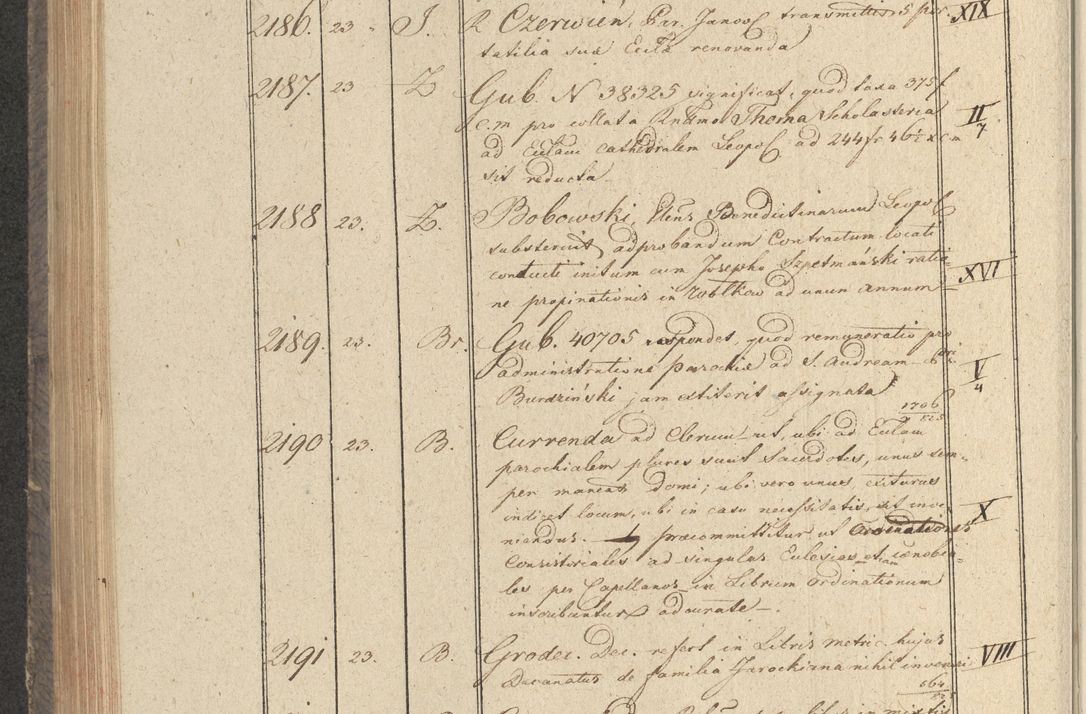 2186. 23. J. R Czerwień, Par. Janov transmittit 5 por- XIX
tatilia sua Eccla renovanda
2187. 23 Z Gub. N 38325 significat, quod taxa 375 f
c.m pro collata Rndmo Thoma Scholasteria II/7
ad Ecclam cathedralem Leopol ad 244 fr 46½ x cm
sit reducta
2188 23. Z. Bobowski, Plens Benedictinarum Leopol
substernit adprobandum Contractum locati
conducti initum cum Josepho Szpetmański ratio- XVI
ne propinationis in Zobtkow ad unum annum
2189. 23. Br. Gub. 40705 respondet, quod remuneratio pro
administratione parochiæ ad S. Andream Pri V/4
Burdziński jam extiterit assignata
1706
2190 23. B. Currenda ad Clerum ut, ubi ad Ecclam
parochialem plures sunt Sacerdotes, unus sem-
per maneat domi; ubi vero unus, exiturus
indicet locum, ubi in casu necessitatis, sit inve- X
niendus. præcommittitur ut Ordinationes
Consistoriales ad singulas Eclesias et cœnobia-
les per Capellanos in Librum Ordinationum
inscribantur adcurate.
2191 23. B. Grodec. Dec. refert in Libris metric. hujus VIII
Decanatus de familia Jarochiana nihil inveniri
564